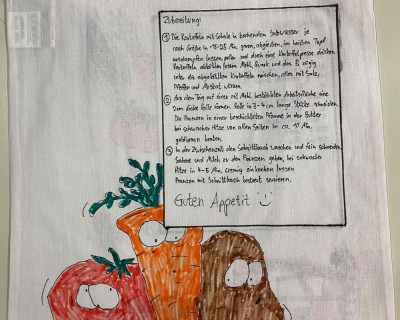 Zubereitung:
① Die Kartoffeln mit Schale in kochendem Salzwasser je
nach Größe in 15-25 Min. garen, abgießen, im heißen Topf
ausdampfen lassen, pellen und durch eine Kartoffelpresse drücken.
Kartoffeln abkühlen lassen. Mehl, und das Ei zügig
unter die abgekühlten Kartoffeln mischen, alles mit Salz,
Pfeffer und Muskat würzen.
② Aus dem Teig auf einer mit Mehl bestäubten Arbeitsfläche eine
2cm dicke Rolle formen. Rolle in 3-4 cm lange Stücke schneiden.
Die Panzen in einer beschichteten Pfanne in der Butter
bei schwacher Hitze von allen Seiten in ca. 10 Min.
goldbraun braten.
③ In der Zwischenzeit den Schnittlauch waschen und fein schneiden.
Sahne und Milch zu den Panzen geben, bei schwacher
Hitze in 4-5 Min. cremig einkochen lassen.
Panzen mit Schnittlauch bestreut servieren.
Guten Appetit :)